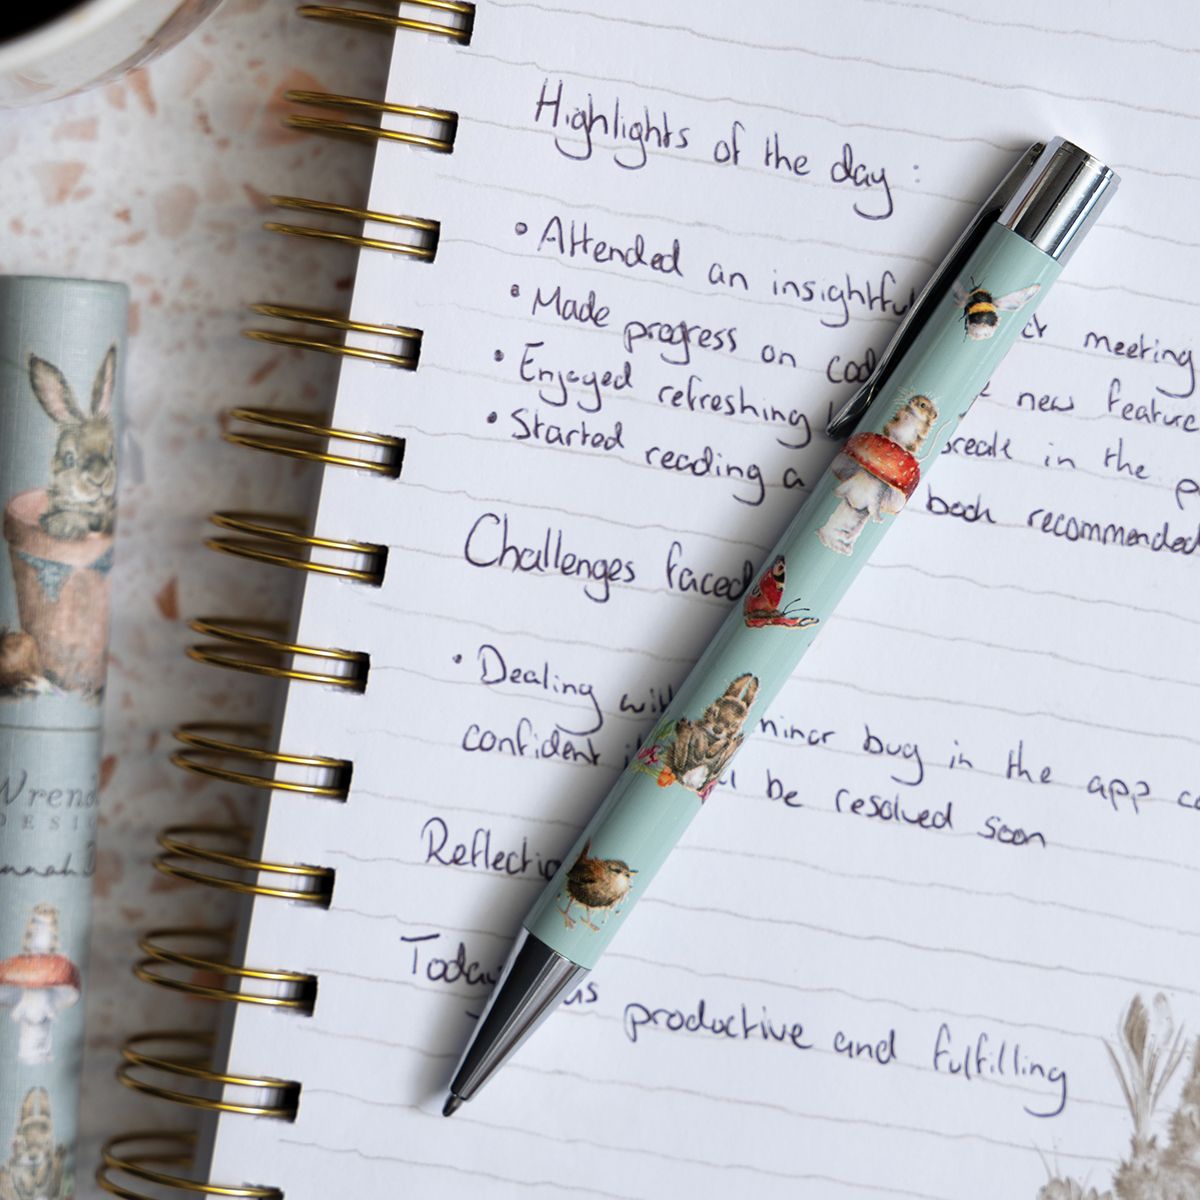 Highlights of the day :
• Attended an insightful meeting
• Made progress on new feature
• Enjoyed refreshing break in the
• Started reading a book recommended
Challenges faced
• Dealing with minor bug in the app
confident be resolved soon
Reflectio
Today was productive and fulfilling
Wren
DESI